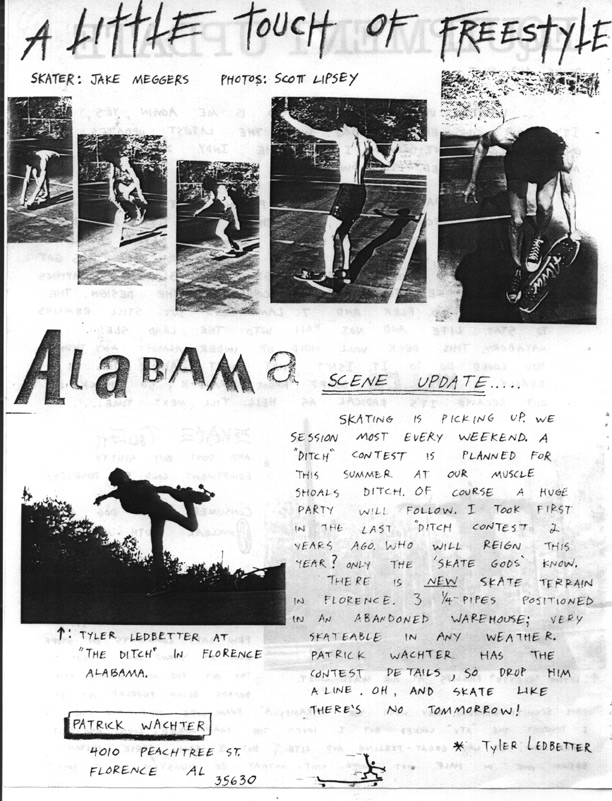 A LITTLE TOUCH OF FREESTYLE
SKATER: JAKE MEGGERS PHOTOS: SCOTT LIPSEY
ALABAMA SCENE UPDATE.....
SKATING IS PICKING UP. WE
SESSION MOST EVERY WEEKEND. A
"DITCH" CONTEST IS PLANNED FOR
THIS SUMMER AT OUR MUSCLE
SHOALS DITCH. OF COURSE A HUGE
PARTY WILL FOLLOW. I TOOK FIRST
IN THE LAST "DITCH CONTEST 2
YEARS AGO. WHO WILL REIGN THIS
YEAR? ONLY THE 'SKATE GODS' KNOW.
THERE IS NEW SKATE TERRAIN
IN FLORENCE. 3 ¼-PIPES POSITIONED
IN AN ABANDONED WAREHOUSE; VERY
SKATEABLE IN ANY WEATHER.
PATRICK WACHTER HAS THE
CONTEST DETAILS, SO DROP HIM
A LINE. OH, AND SKATE LIKE
THERE'S NO TOMMORROW!
* TYLER LEDBETTER
↑: TYLER LEDBETTER AT
"THE DITCH" IN FLORENCE
ALABAMA.
PATRICK WACHTER
4010 PEACHTREE ST.
FLORENCE AL
35630